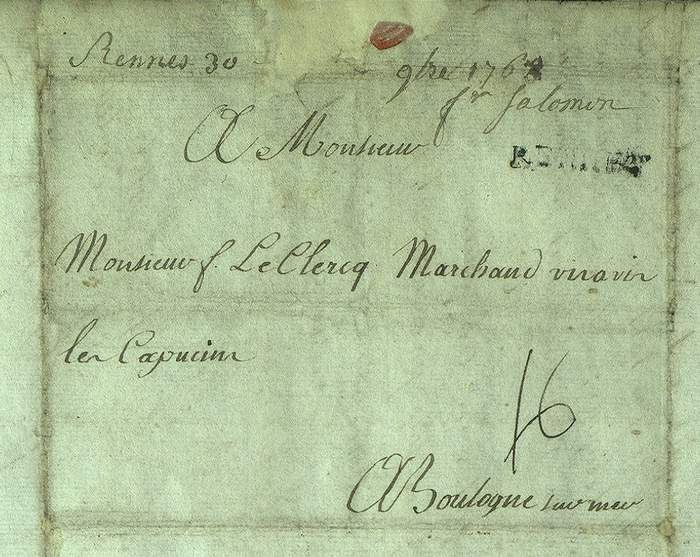 Rennes 30 9bre 1768
fr Salomon
A Monsieur
RENNES
Monsieur f. LeClercq Marchand visavis
les Capucins
16
A Boulogne sur mer